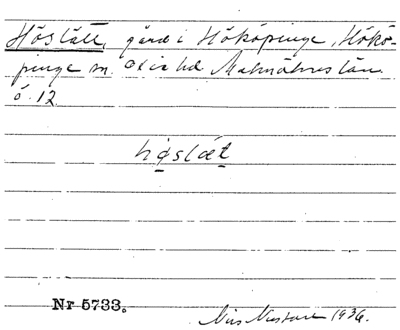 Höslätt, gård i Hököpinge, Hökö-
pinge sn. Oxie hd Malmöhus län.
ö. 12.
høslæt
Nr 5733.
1936.